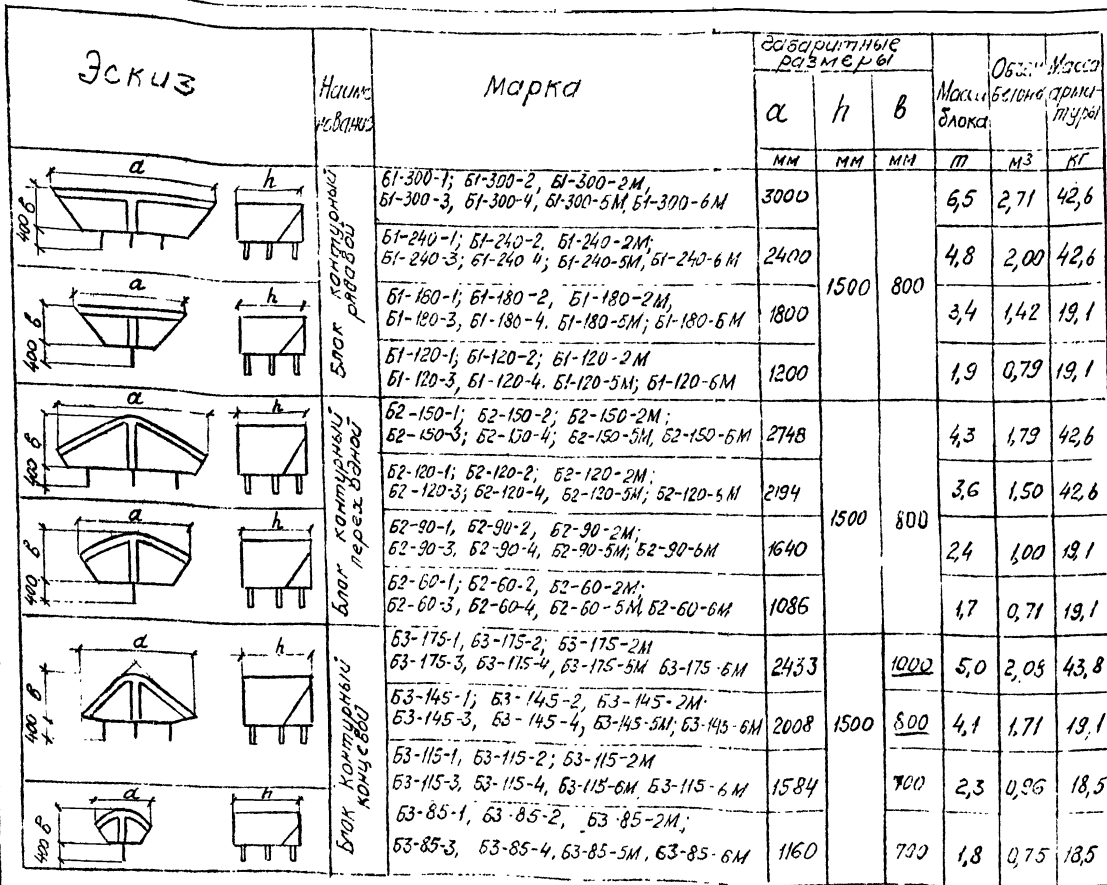 Эскиз
Марка
Габаритные
размеры
a
h
в
Масса
блока
Объем
бетона
Масса
арма-
туры
мм
мм
мм
т
м3
кг
Блок контурный
рядовой
a
h
400 в
Б1-300-1; Б1-300-2, Б1-300-2М,
Б1-300-3, Б1-300-4, Б1-300-5М, Б1-300-6М
3000
6,5
2,71
42,6
Б1-240-1; Б1-240-2, Б1-240-2М;
Б1-240-3; Б1-240 4; Б1-240-5М, Б1-240-6М
2400
4,8
2,00
42,6
1500
800
a
h
400 в
Б1-180-1; Б1-180-2, Б1-180-2М,
Б1-180-3, Б1-180-4. Б1-180-5М; Б1-180-6М
1800
3,4
1,42
19,1
Б1-120-1; Б1-120-2; Б1-120-2М
Б1-120-3, Б1-120-4. Б1-120-5М; Б1-120-6М
1200
1,9
0,79
19,1
Блок контурный
переходной
a
h
400 в
Б2-150-1; Б2-150-2; Б2-150-2М;
Б2-150-3; Б2-150-4; Б2-150-5М, Б2-150-6М
2748
4,3
1,79
42,6
Б2-120-1; Б2-120-2; Б2-120-2М;
Б2-120-3; Б2-120-4, Б2-120-5М; Б2-120-6М
2194
3,6
1,50
42,6
1500
800
a
h
400 в
Б2-90-1, Б2-90-2, Б2-90-2М;
Б2-90-3, Б2-90-4, Б2-90-5М; Б2-90-6М
1640
2,4
1,00
19,1
Б2-60-1; Б2-60-2, Б2-60-2М;
Б2-60-3, Б2-60-4, Б2-60-5М, Б2-60-6М
1086
1,7
0,71
19,1
Блок контурный
концевой
a
h
400 в
Б3-175-1, Б3-175-2; Б3-175-2М
Б3-175-3, Б3-175-4, Б3-175-5М Б3-175-6М
2433
1000
5,0
43,8
Б3-145-1; Б3-145-2, Б3-145-2М.
Б3-145-3, Б3-145-4, Б3-145-5М; Б3-145-6М
2008
1500
800
4,1
1,71
19,1
Б3-115-1, Б3-115-2; Б3-115-2М
Б3-115-3, Б3-115-4, Б3-115-6М, Б3-115-6М
1584
700
2,3
0,96
18,5
a
h
400 в
Б3-85-1, Б3-85-2, Б3-85-2М;
Б3-85-3, Б3-85-4, Б3-85-5М, Б3-85-6М
1160
700
1,8
0,75
18,5